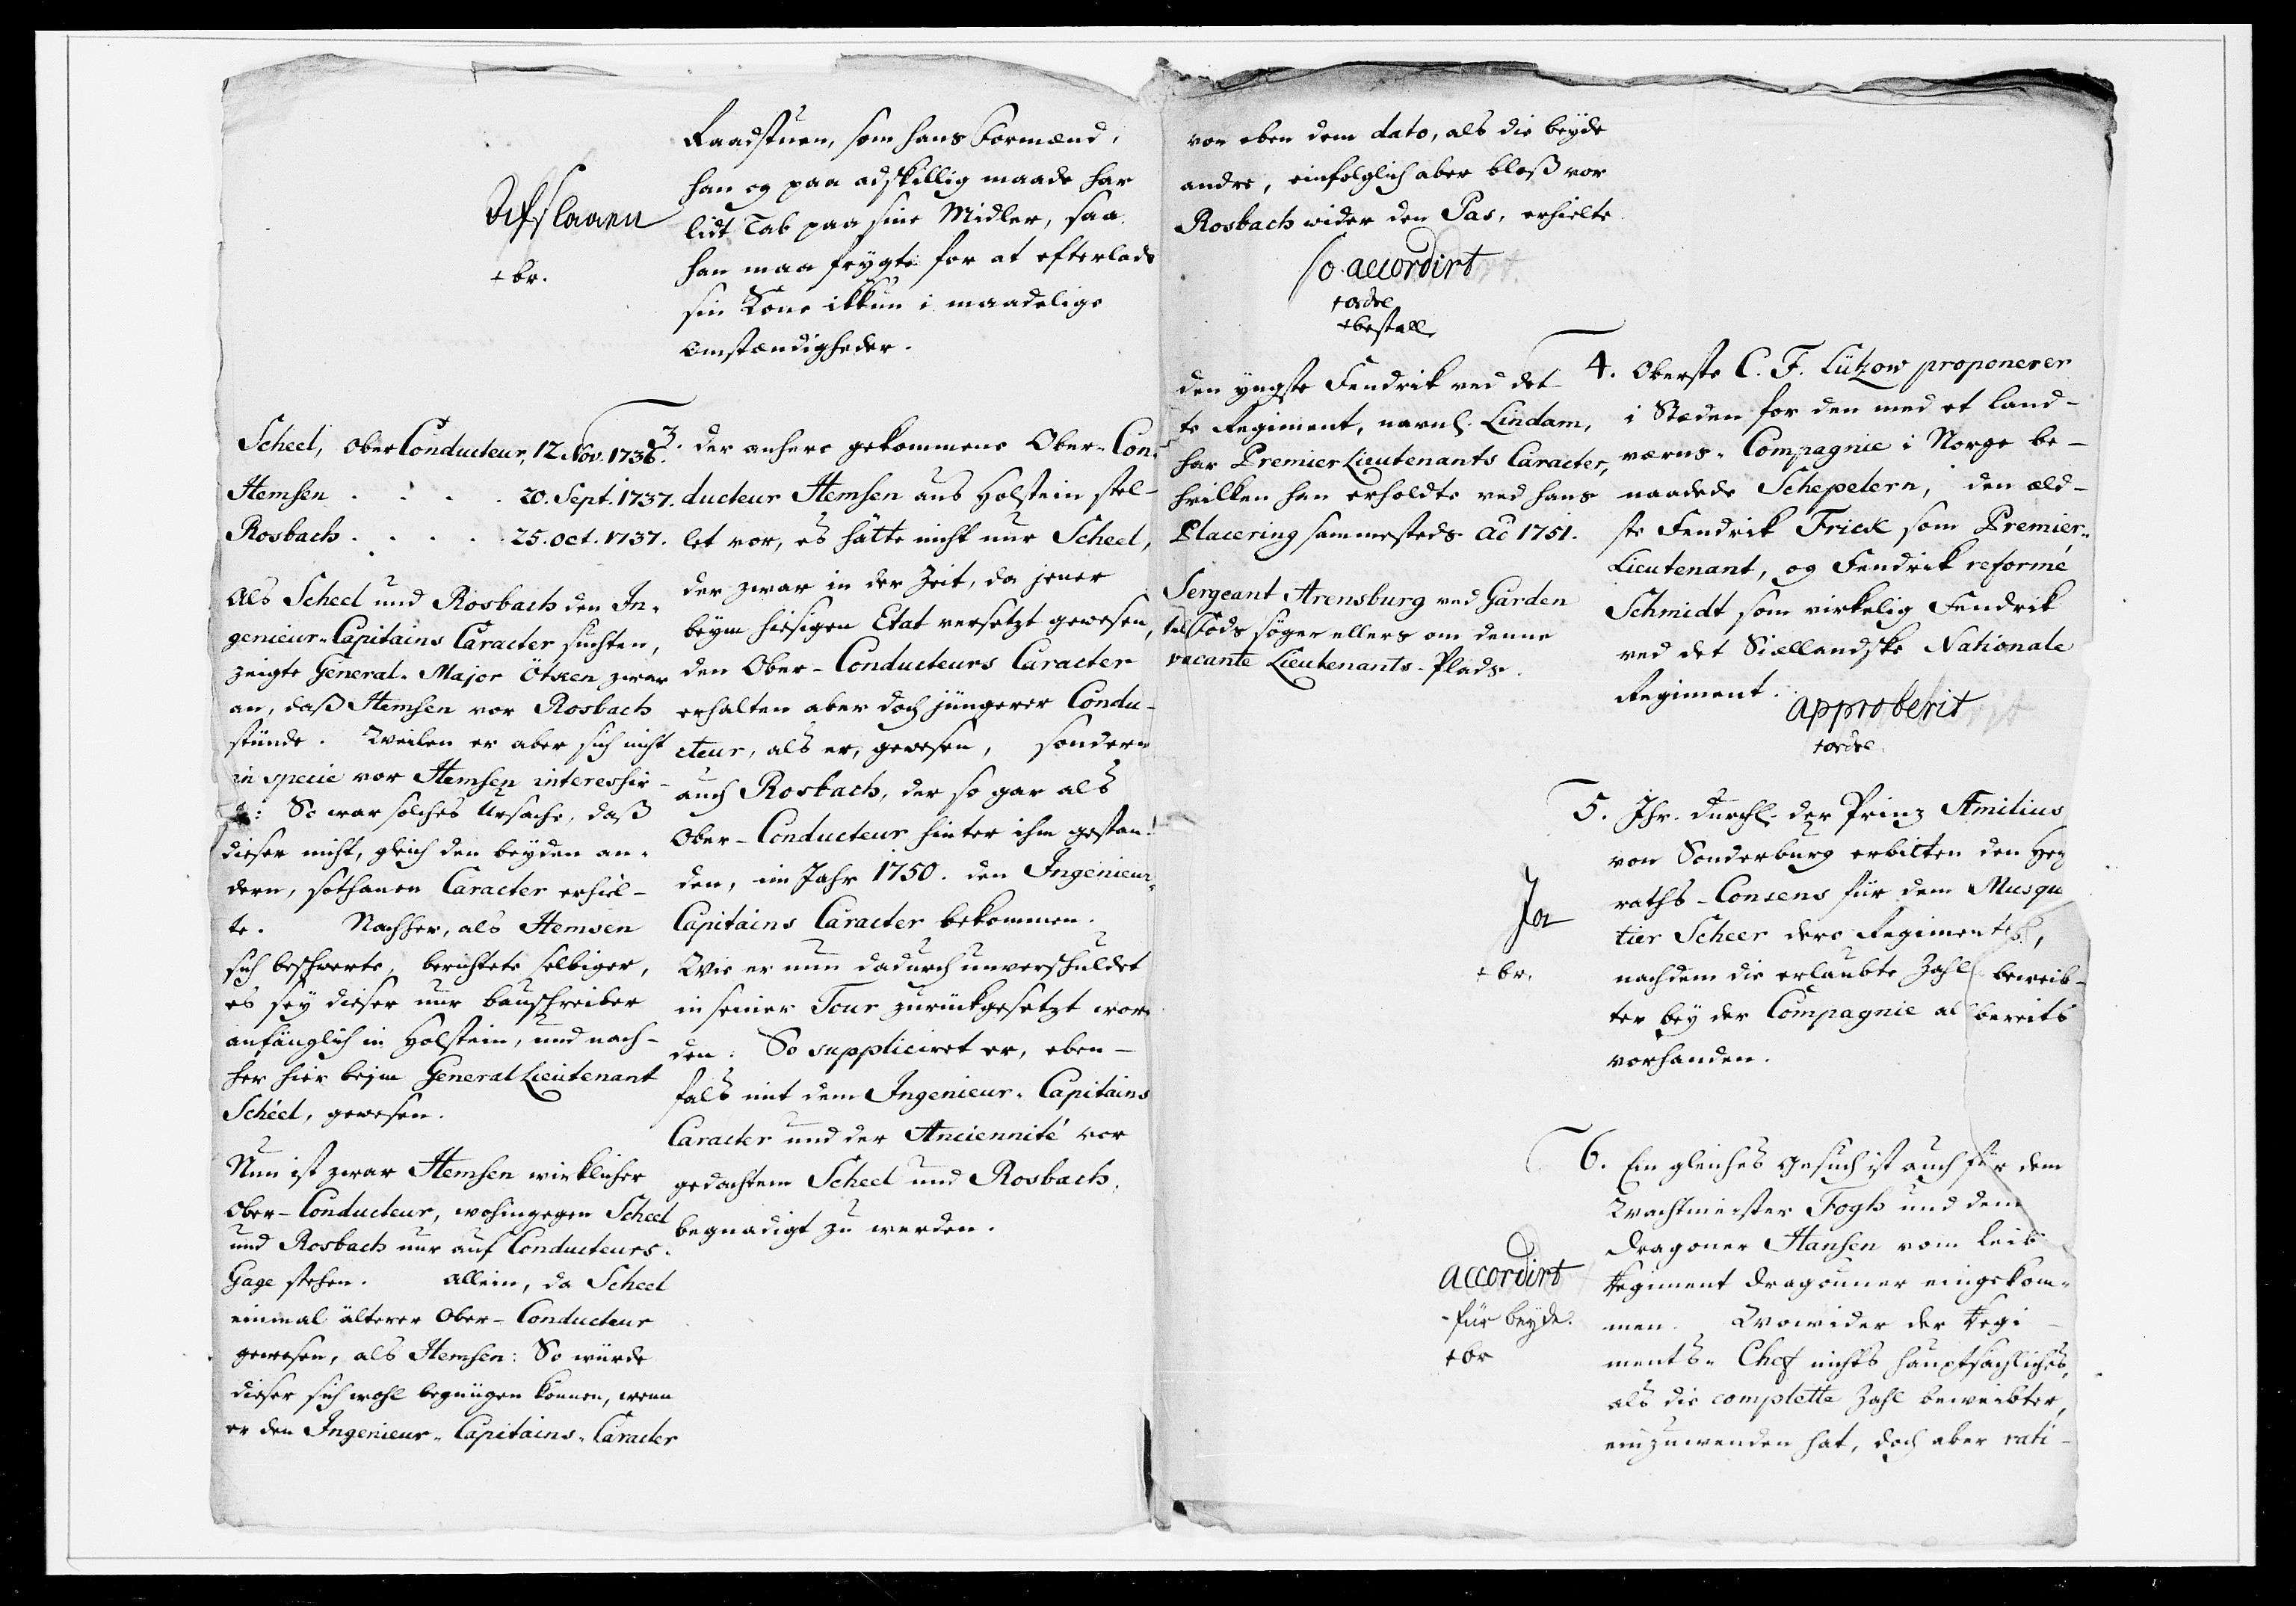 Raadstuen, som hans Formænd,
han og paa adskillig maade har
lidt Tab paa sine Midler, saa
han maa frygte for at efterlade
sin Kone ikkun i maadelige
omstændigheder.
Afslaaen
+ br.
Scheel, Ober Conducteur, 12 Nov. 1736.
Hemsen . . . . 20. Sept. 1737.
Rosbach . . . . 25. Oct. 1737.
Als Scheel und Rosbach den In-
genieur-Capitains Caracter suchten,
zeigte General-Major Ötken zwar
an, daß Hemsen vor Rosbach
stünde. Weilen er aber sich nicht
in specie vor Hemsen interessir-
te: So war solches Ursache, daß
dieser nicht, gleich den beyden an-
dern, sothanen Caracter erhiel-
te. Nachher, als Hemsen
sich beschwerte, berichtete selbiger,
es sey dieser nur bauschreiber
anfänglich in Holstein, und nach-
her hier beym General Lieutenant
Scheel, gewesen.
Nun ist zwar Hemsen wirklicher
Ober-Conducteur, wohingegen Scheel
und Rosbach nur auf Conducteurs-
Gage stehen. Allein, da Scheel
einmal älterer Ober-Conducteur
gewesen, als Hemsen: So würde
dieser sich wohl begnügen können, wenn
er den Ingenieur-Capitains-Caracter
3. Der anhero gekommene Ober-Con-
ducteur Hemsen aus Holstein stel-
let vor, es hätte nicht nur Scheel,
der zwar in der Zeit, da jener
beym hiesigen Etat versetzt gewesen,
den Ober-Conducteurs Caracter
erhalten aber doch jüngerer Condu-
cteur, als er, gewesen, sondern
auch Rosbach, der so gar als
Ober-Conducteur hinter ihm gestan-
den, im Jahr 1750. den Ingenieur-
Capitains Caracter bekommen.
Wie er nun dadurch unverschuldet
in seiner Tour zurückgesetzt wor-
den: So suppliciret er, eben-
fals mit dem Ingenieur-Capitains
Caracter und der Anciennité vor
gedachtem Scheel und Rosbach,
begnadigt zu werden.
von eben dem dato, als die beyde
andre, einfolglich aber bloß vor
Rosbach wider den Pas, erhielte
so accordirt
+ ordre
+ bestall.
den yngste Fendrik ved det-
te Regiment, navnl. Lindam,
har Premier Lieutenants Caracter,
hvilken han erholdte ved hans
Placering sammesteds Ao 1751.
Sergeant Arensburg ved Garden
til Fods søger ellers om denne
vacante Lieutenants-Plads.
4. Oberste C. F. Lützow proponerer
i Stæden for den med et Land-
værns-Compagnie i Norge be-
naadede Schepelern, den æld-
ste Fendrik Frick som Premier-
Lieutenant, og Fendrik reformé
Schmidt som virkelig Fendrik
ved det Siællandske Nationale
Regiment.
approberit
+ ordre
5. Ihr. Durchl. der Prinz Æmilius
von Sonderburg erbitten den Hey
raths-Consens für dem Musque
tier Scheer dero Regiments,
nachdem die erlaubte Zahl beweib-
ter bey der Compagnie al bereits
vorhanden.
Ja
+ br.
6. Ein gleiches Gesuch ist auch für dem
Wachtmeister Fogh und dem
Dragoner Hansen vom Leib
Regiment Dragouner eingekom-
men. Wowider der Regi-
ments-Chef nichts hauptsächliches,
als die complette Zahl beweibter,
einzuwenden hat, doch aber rati-
accordirt
für beyde.
+ br